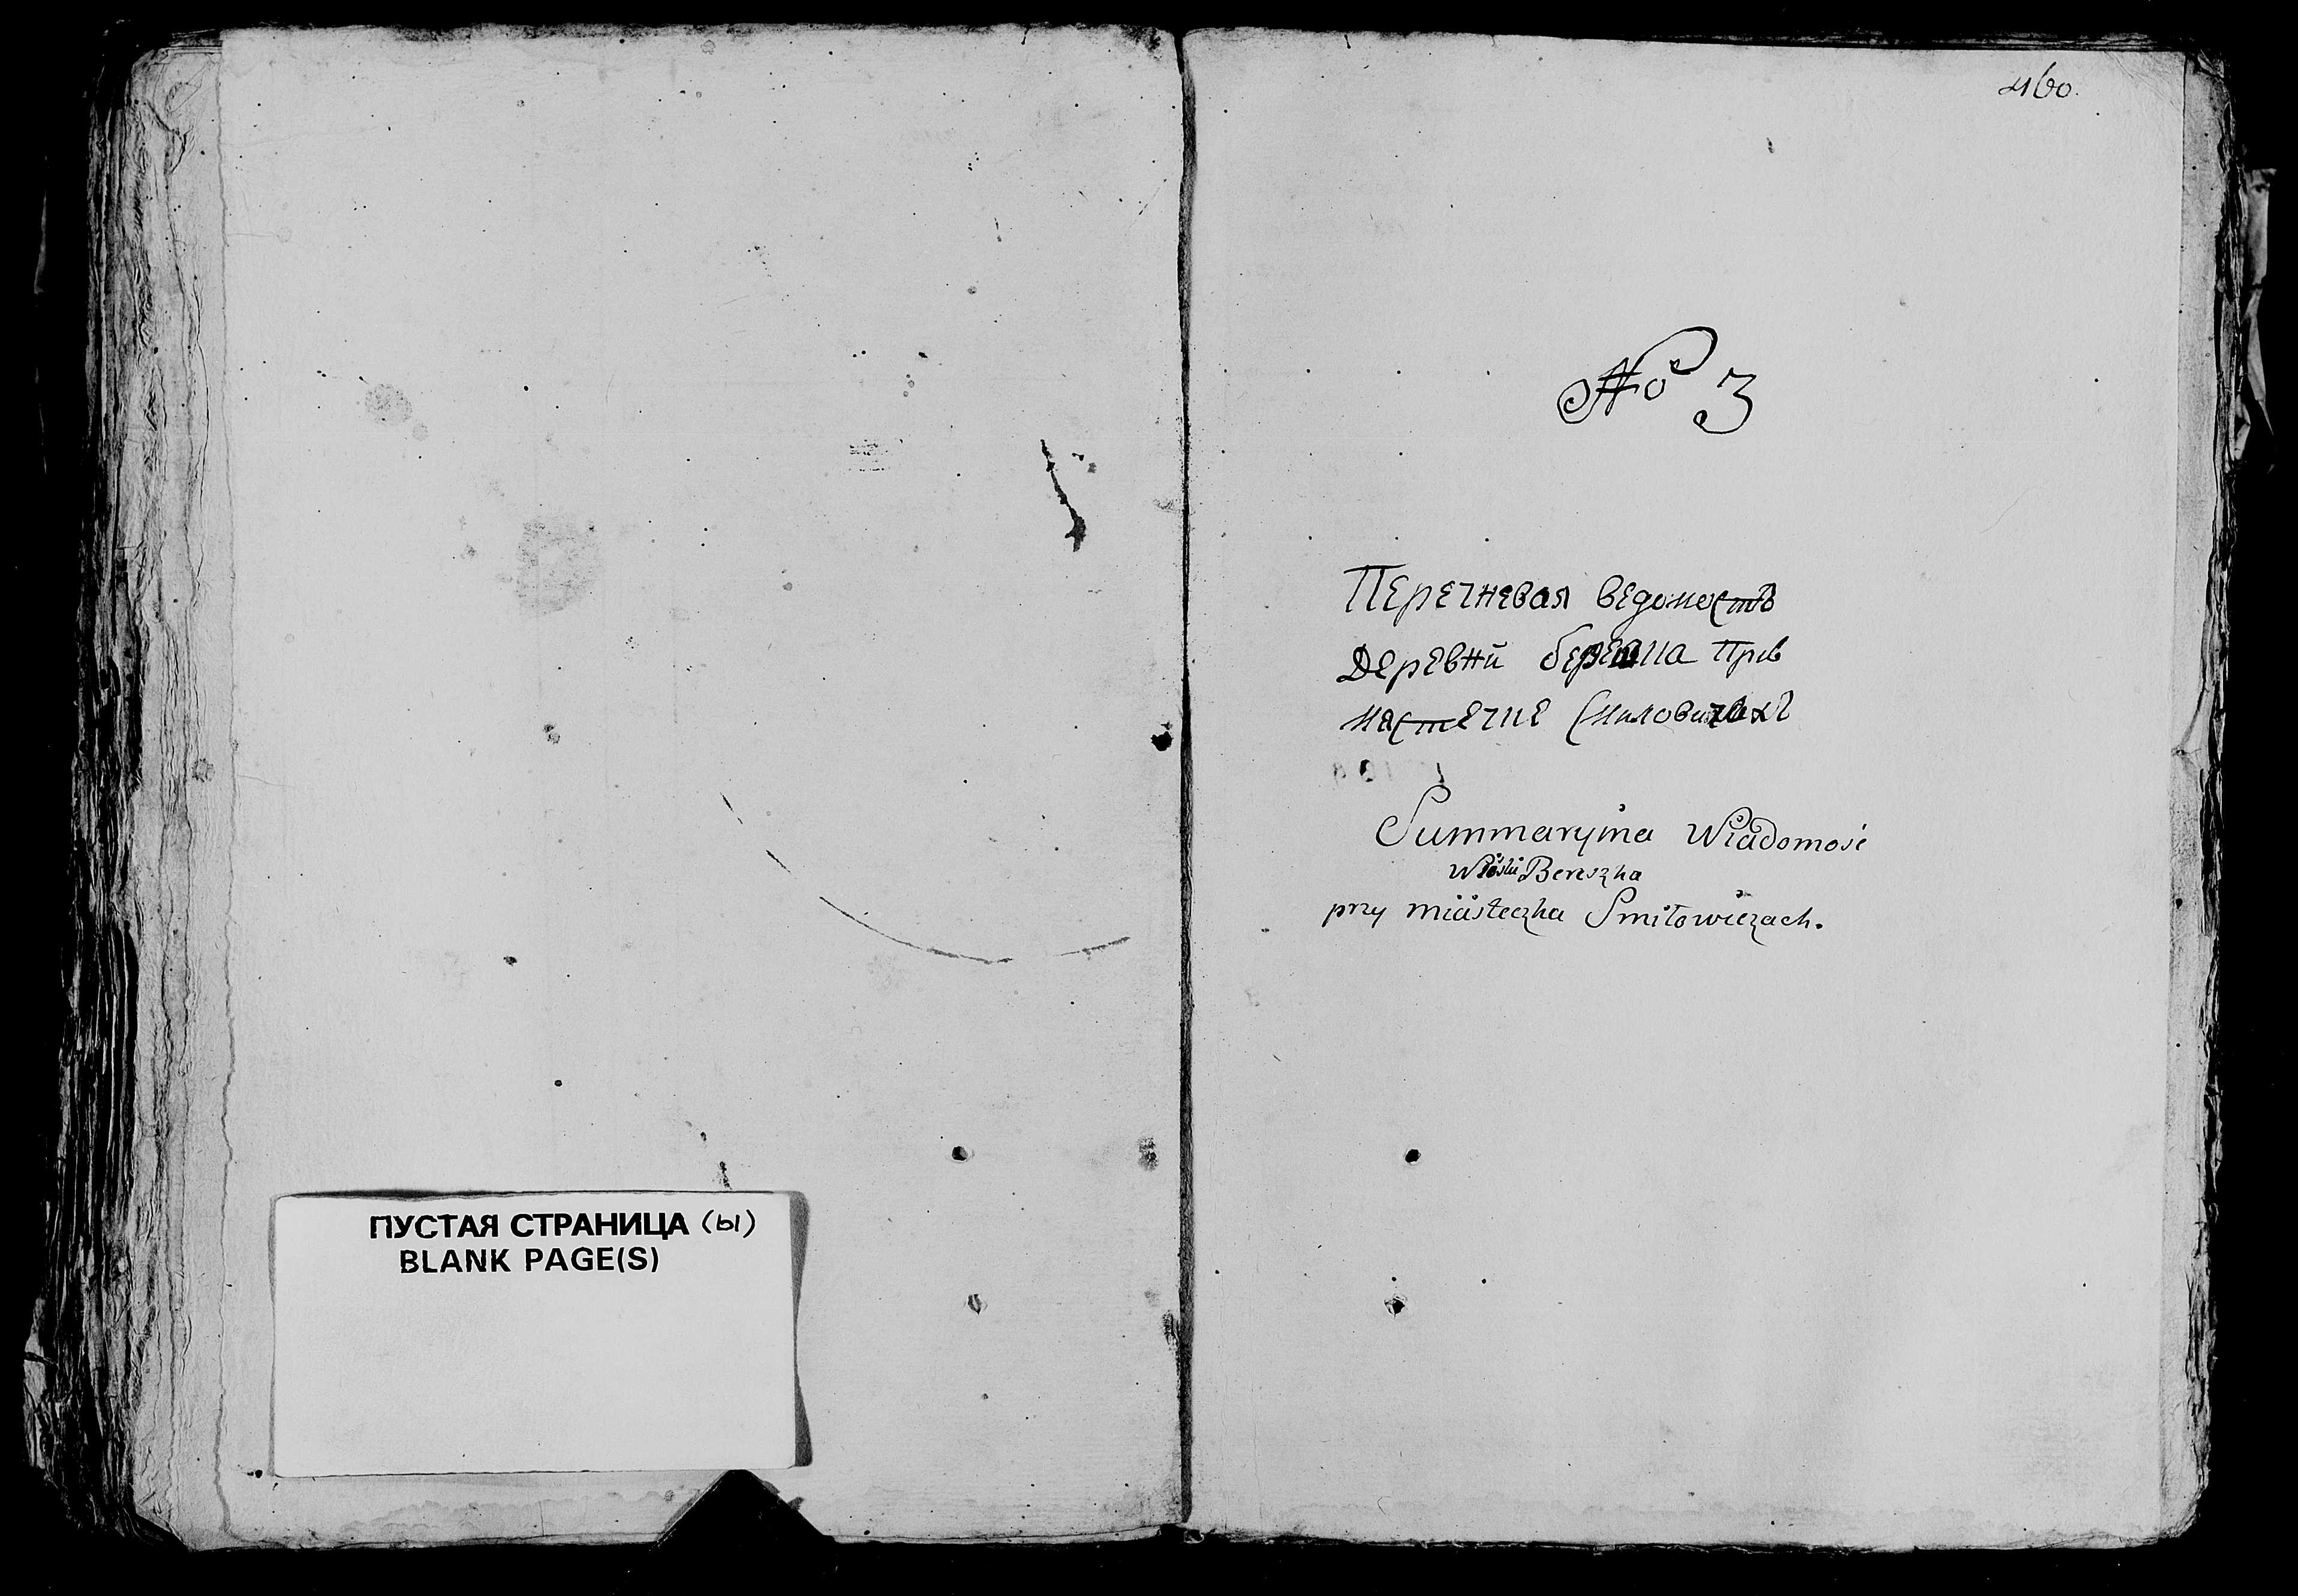 ПУСТАЯ СТРАНИЦА (ы)
BLANK PAGE(S)
460.
No 3
Перечневая ведомость
деревни при
местечке Смиловичахъ
Summaryina Wiadomość
Wioski Bereszka
przy miasteczka Smiłowiczach.